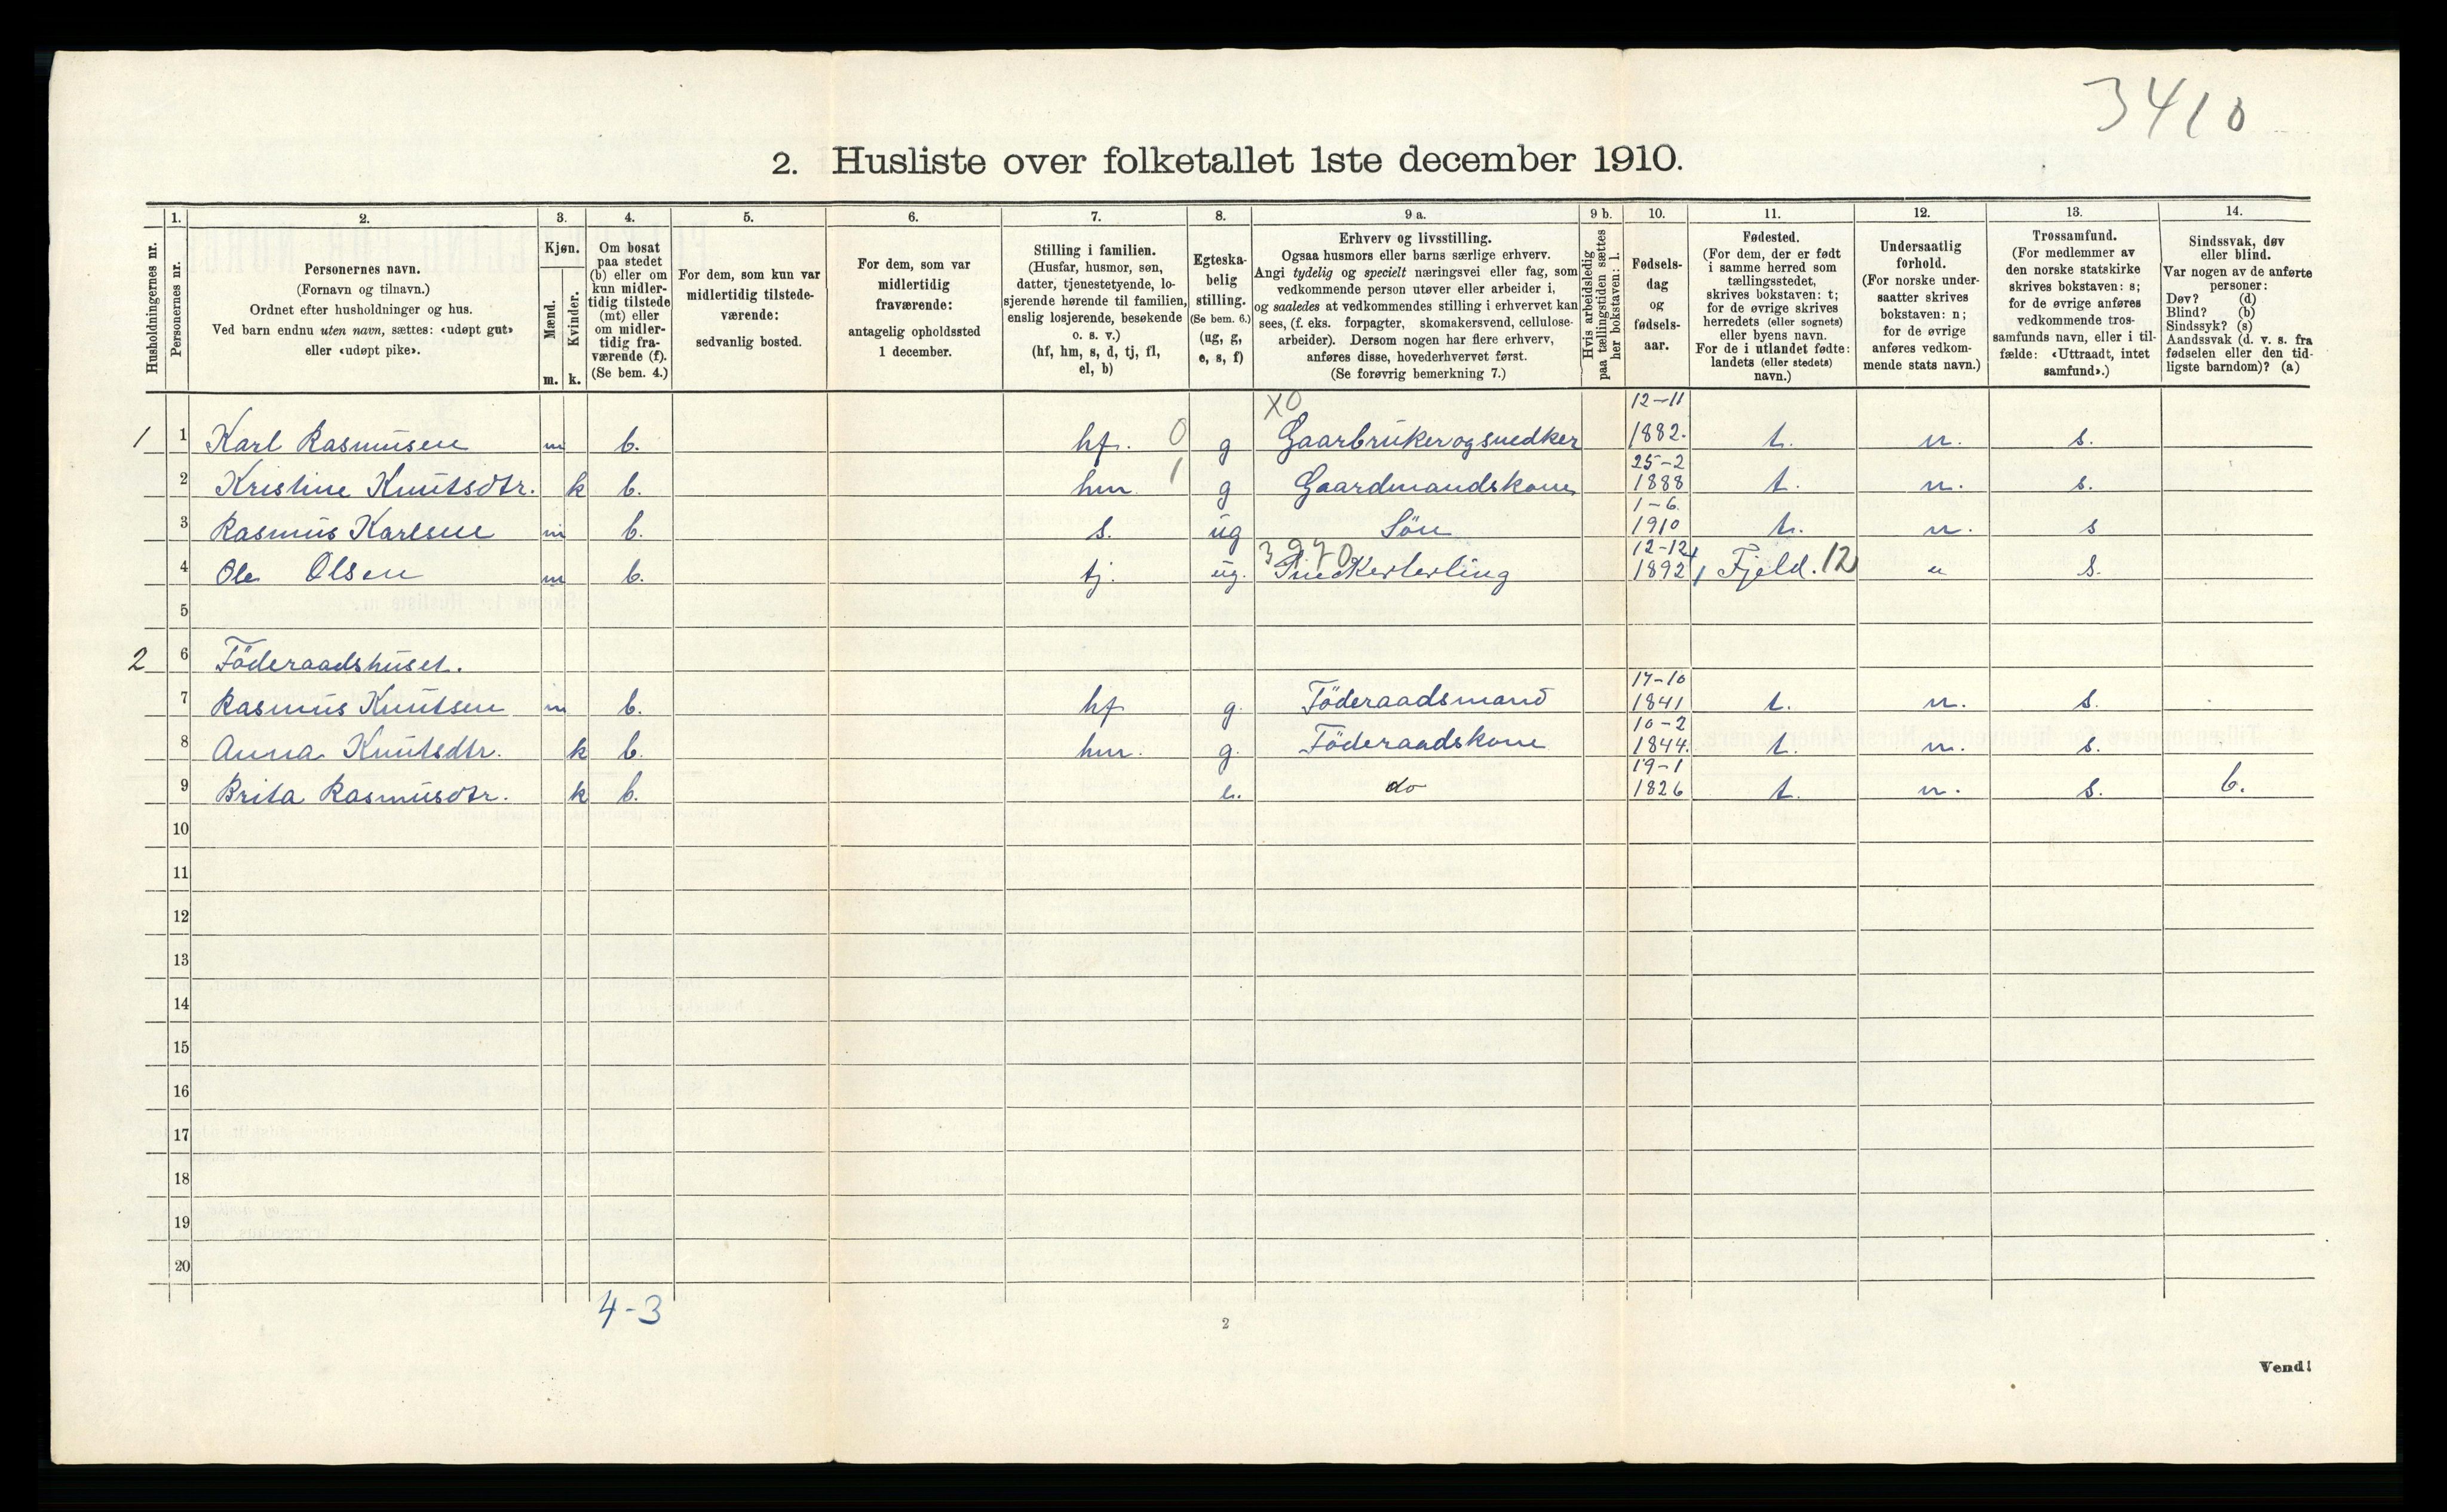 3410
2. Husliste over folketallet 1ste december 1910.
Husholdningernes nr.
1.
Personernes nr.
2.
Personernes navn.
(Fornavn og tilnavn.)
Ordnet efter husholdninger og hus.
Ved barn endnu uten navn, sættes: «udøpt gut»
eller «udøpt pike».
3.
Kjøn.
Mænd.
m.
Kvinder.
k.
4.
Om bosat
paa stedet
(b) eller om
kun midler-
tidig tilstede
(mt) eller
om midler-
tidig fra-
værende (f).
(Se bem. 4.)
5.
For dem, som kun var
midlertidig tilstede-
værende:
sedvanlig bosted.
6.
For dem, som var
midlertidig
fraværende:
antagelig opholdssted
1 december.
7.
Stilling i familien.
(Husfar, husmor, søn,
datter, tjenestetyende, lo-
sjerende hørende til familien,
enslig losjerende, besøkende
o. s. v.)
(hf, hm, s, d, tj, fl,
el, b)
8.
Egteska-
belig
stilling.
(Se bem. 6.)
(ug, g,
e, s, f)
9 a.
Erhverv og livsstilling.
Ogsaa husmors eller barns særlige erhverv.
Angi tydelig og specielt næringsvei eller fag, som
vedkommende person utøver eller arbeider i,
og saaledes at vedkommendes stilling i erhvervet kan
sees, (f. eks. forpagter, skomakersvend, cellulose-
arbeider). Dersom nogen har flere erhverv,
anføres disse, hovederhvervet først.
(Se forøvrig bemerkning 7.)
9 b.
Hvis arbeidsledig
paa tællingstiden sættes
her bokstaven: l.
10.
Fødsels-
dag
og
fødsels-
aar.
11.
Fødested.
(For dem, der er født
i samme herred som
tællingsstedet,
skrives bokstaven: t;
for de øvrige skrives
herredets (eller sognets)
eller byens navn.
For de i utlandet fødte:
landets (eller stedets)
navn.)
12.
Undersaatlig
forhold.
(For norske under-
saatter skrives
bokstaven: n;
for de øvrige
anføres vedkom-
mende stats navn.)
13.
Trossamfund.
(For medlemmer av
den norske statskirke
skrives bokstaven: s;
for de øvrige anføres
vedkommende tros-
samfunds navn, eller i til-
fælde: «Uttraadt, intet
samfund».)
14.
Sindssvak, døv
eller blind.
Var nogen av de anførte
personer:
Døv? (d)
Blind? (b)
Sindssyk? (s)
Aandssvak (d. v. s. fra
fødselen eller den tid-
ligste barndom)? (a)
X0 12-11
1 1 Karl Rasmusen m b. hf. 0 g Gaarbruker og snedker 1882. t. n. s.
25-2
2 Kristine Knutsdtr. k b. hm 1 g Gaardmandskone 1888 t. n. s.
1-6.
3 Rasmus Karlsen m b. s. ug Sön 1910 t. n. s
3970 12-12
4 Ole Olsen m b. tj. ug. Snekkerlerling 1892 Fjeld. 12 n s.
5
2 6 Föderaadshuset.
17-10
7 Rasmus Knutsen m b. hf g. Föderaadsmand 1841 t. n. s.
10-2
8 Anna Knutsdtr. k b. hm. g. Föderaadskone 1844. t. n. s.
19-1
9 Brita Rasmusdtr. k b. e. do 1826 t. n. s. b.
10
11
12
13
14
15
16
17
18
19
20
4-3
2
Vend!